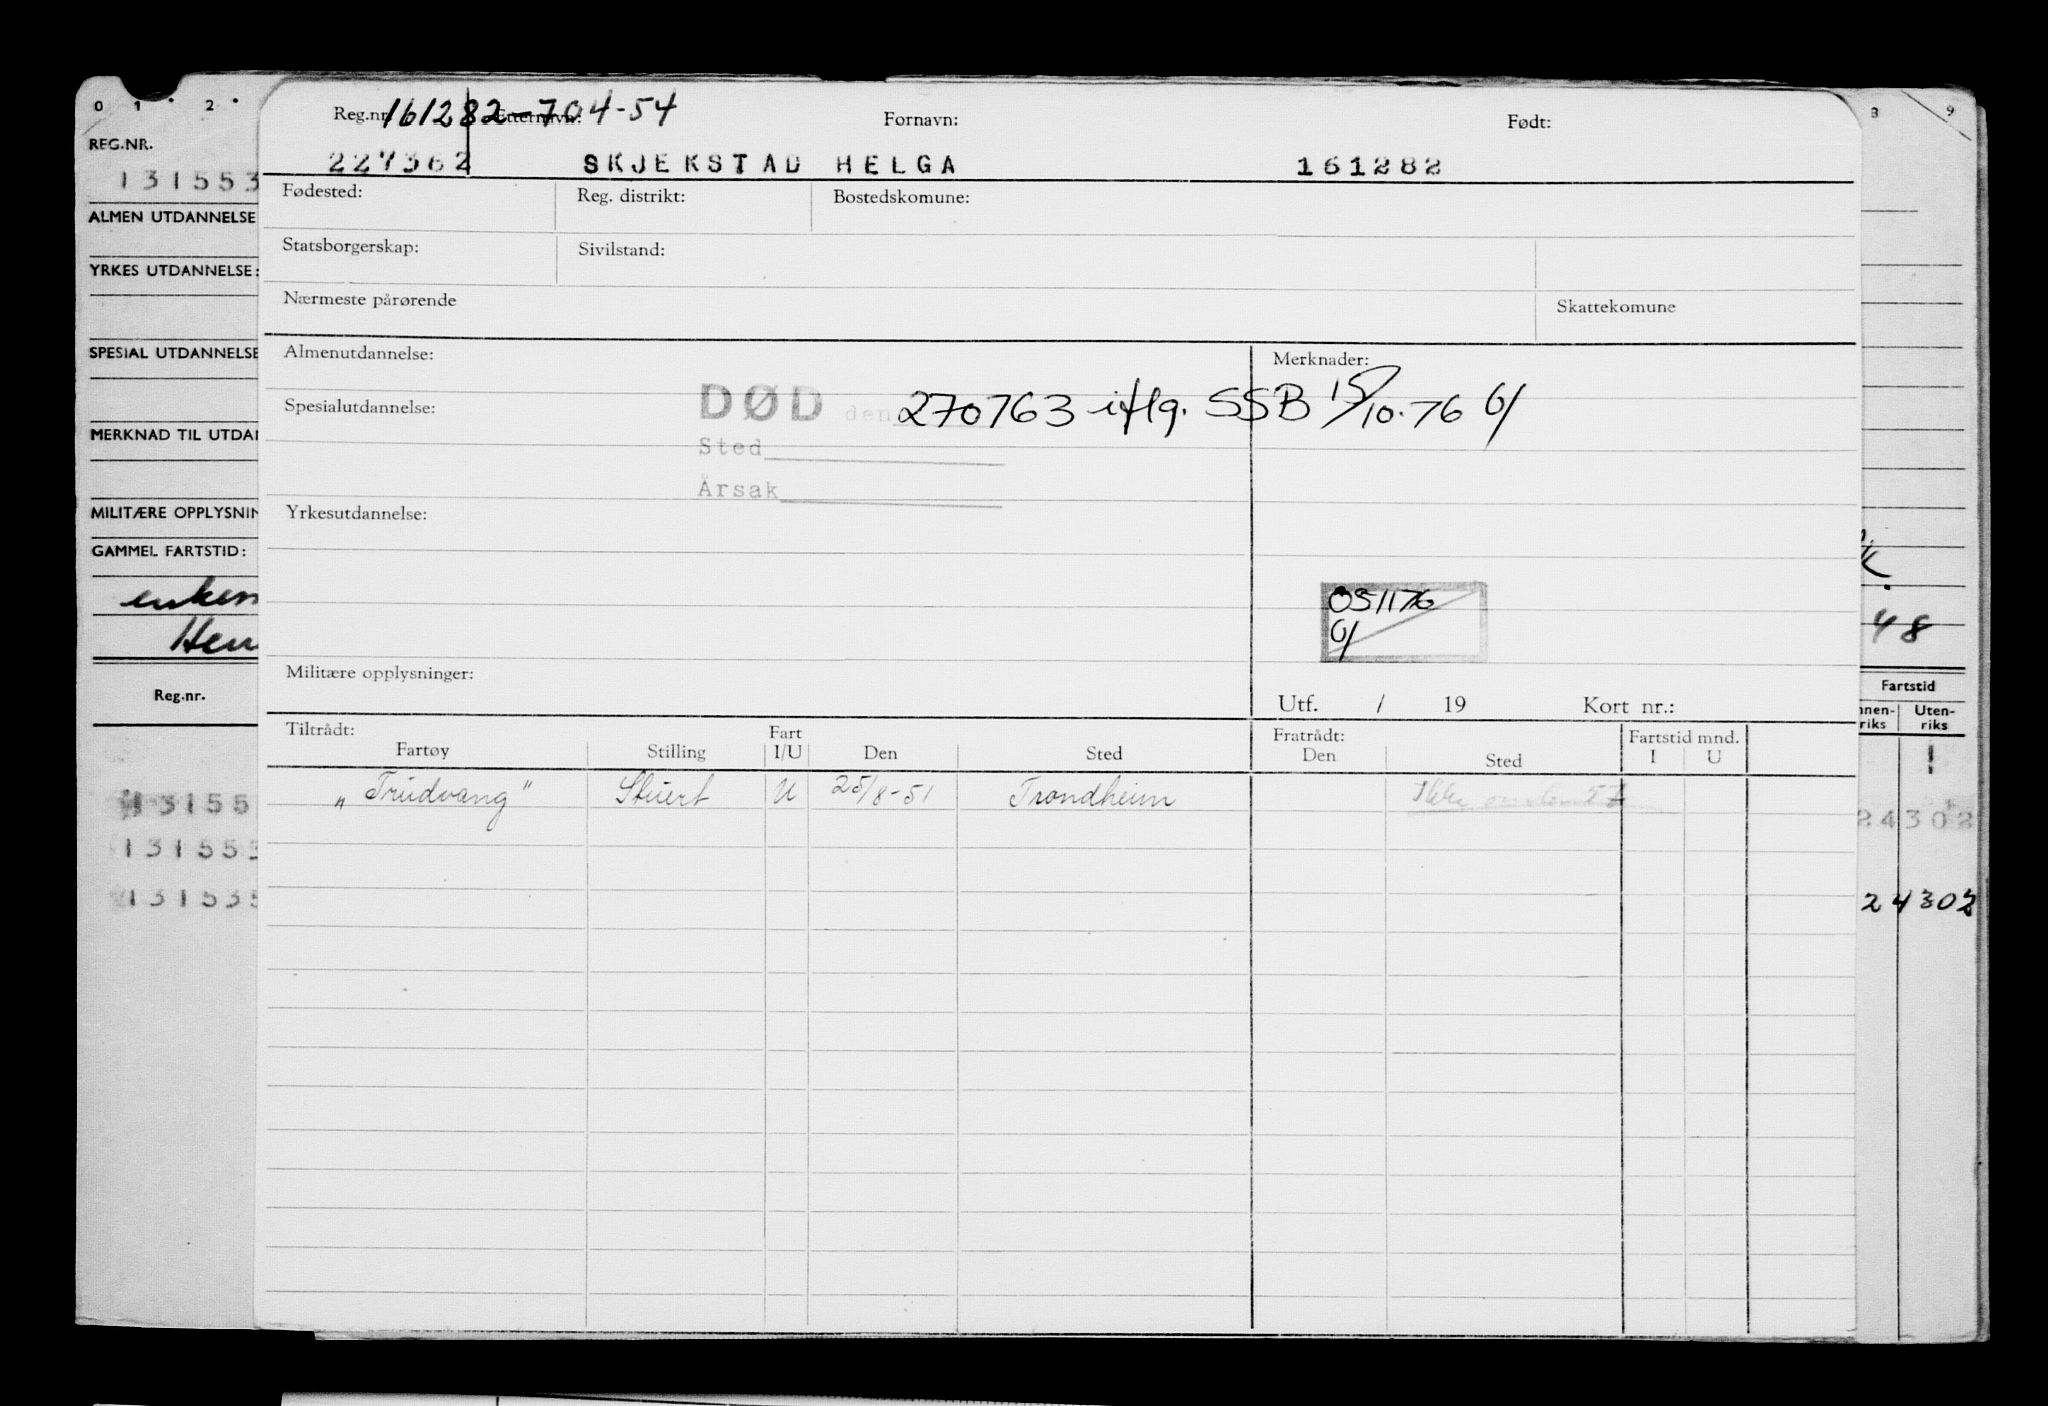 0 1 2
REG.NR.
131553
ALMEN UTDANNELSE
YRKES UTDANNELSE:
SPESIAL UTDANNELSE
MERKNAD TIL UTDAN
MILITÆRE OPPLYSNIN
GAMMEL FARTSTID:
Reg.nr.
13155
131553
131535
Reg.nr. 161282-704-54 Etternavn: Fornavn: Født:
227362 SKJEKSTAD HELGA 161282
Fødested: Reg. distrikt: Bostedskomune:
Statsborgerskap: Sivilstand:
Nærmeste pårørende Skattekomune
Almenutdannelse: Merknader:
Spesialutdannelse: DØD den 270763 iflg. SSB 15/10-76
Sted
Årsak
Yrkesutdannelse:
051176
Militære opplysninger:
Utf. / 19 Kort nr.:
Tiltrådt: Fart Fratrådt: Fartstid mnd.
Fartøy Stilling I/U Den Sted Den Sted I U
„Trudvang" Stuert U 25/8-51 Trondheim Ikke
8 9
48
Fartstid
nnen-riks Uten-riks
!
24302
24302